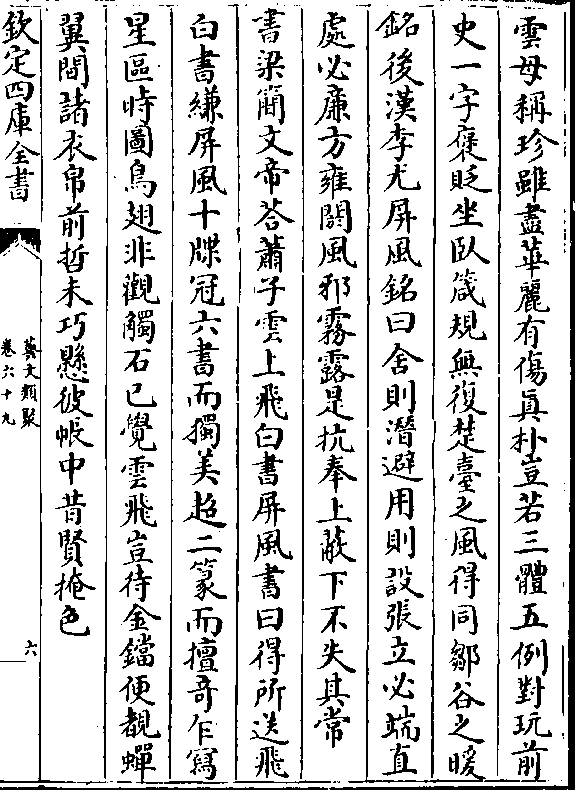 雲母稱珍雖盡華麗有傷真朴豈若三體五例對玩前
史一字褒貶坐臥箴規無復楚臺之風得同鄒谷之暖
銘後漢李尤屏風銘曰舍則潛避用則設張立必端直
處必廉方雍閼風邪霧露是抗奉上蔽下不失其常
書梁簡文帝荅蕭子雲上飛白書屏風書曰得所送飛
白書縑屏風十牒冠六書而獨美超二篆而擅奇乍寫
星區時圖鳥翅非觀觸石已覺雲飛豈待金鐺便覩蟬
翼間諸衣帛前哲未巧懸彼帳中昔賢掩色
欽定四庫全書
藝文類聚
卷六十九
六